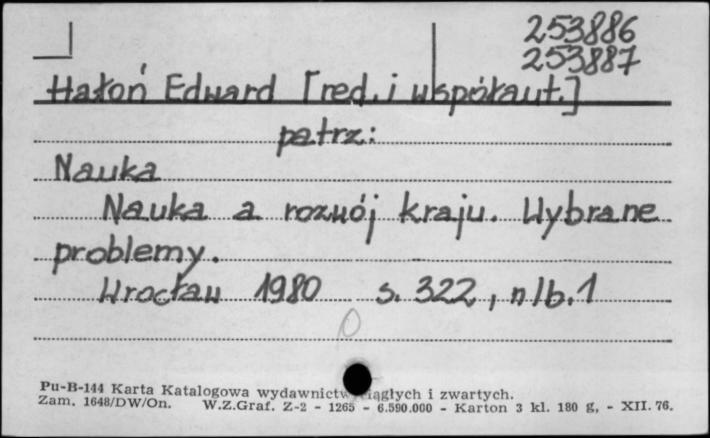 253886
253887
Hałoń Edward [red. i współaut.]
patrz:
Nauka
Nauka a rozwój kraju. Wybrane
problemy.
Wrocław 1980 s. 322, nlb. 1
Pu-B-144 Karta Katalogowa wydawnictw ciągłych i zwartych.
Zam. 1648/DW/On. W.Z.Graf. Z-2 - 1265 - 6.590.000 - Karton 3 kl. 180 g, - XII. 76.